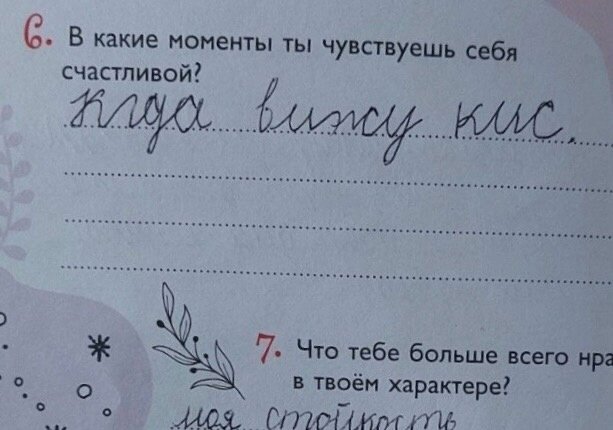 6. В какие моменты ты чувствуешь себя
счастливой?
кгда вижу кис.
7. Что тебе больше всего нра
в твоём характере?
моя стойкость